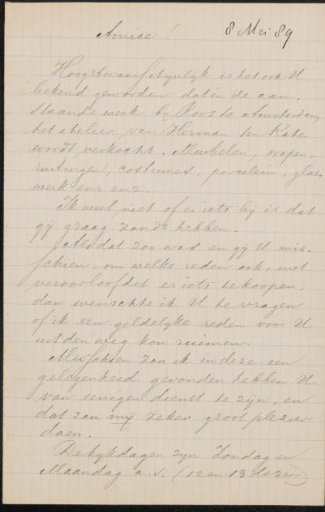 Amice! 8 Mei 89
Hoogstwaarschynlyk is het ook U
bekend geworden dat in de aan-
staande week by Roos te Amsterdam,
het atelier van Herman ten Kate
wordt verkocht. Meubelen, wapen-
rustingen, costumes, porcelein, glas-
werk enz enz.
Ik weet niet of er iets bij is dat
gij graag zoudt hebben.
Als dat zoo was en gij U mis-
schien, om welke reden ook, niet
veroorloofdet er iets te koopen,
dan wenschte ik U te vragen
of ik een geldelyke reden voor U
uit den weg kon ruimen.
Misschien zou ik in deze een
gelegenheid gevonden hebben U
van eenigen dienst te zyn, en
dat zou mij zeker groot plezier
doen.
Bekykdagen zyn Zondag en
Maandag a.s. (12 en 13 dezer)